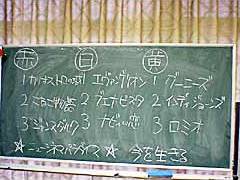 赤 白 黄
1 カリオストロの城 1 エヴァンゲリオン 1 グーニーズ
2 2 ブエナビスタ 2 インディジョーンズ
3 ジャンヌダルク 3 ナビィの恋 3 ロミオ
☆ニューシネマパラダイス ☆今を生きる